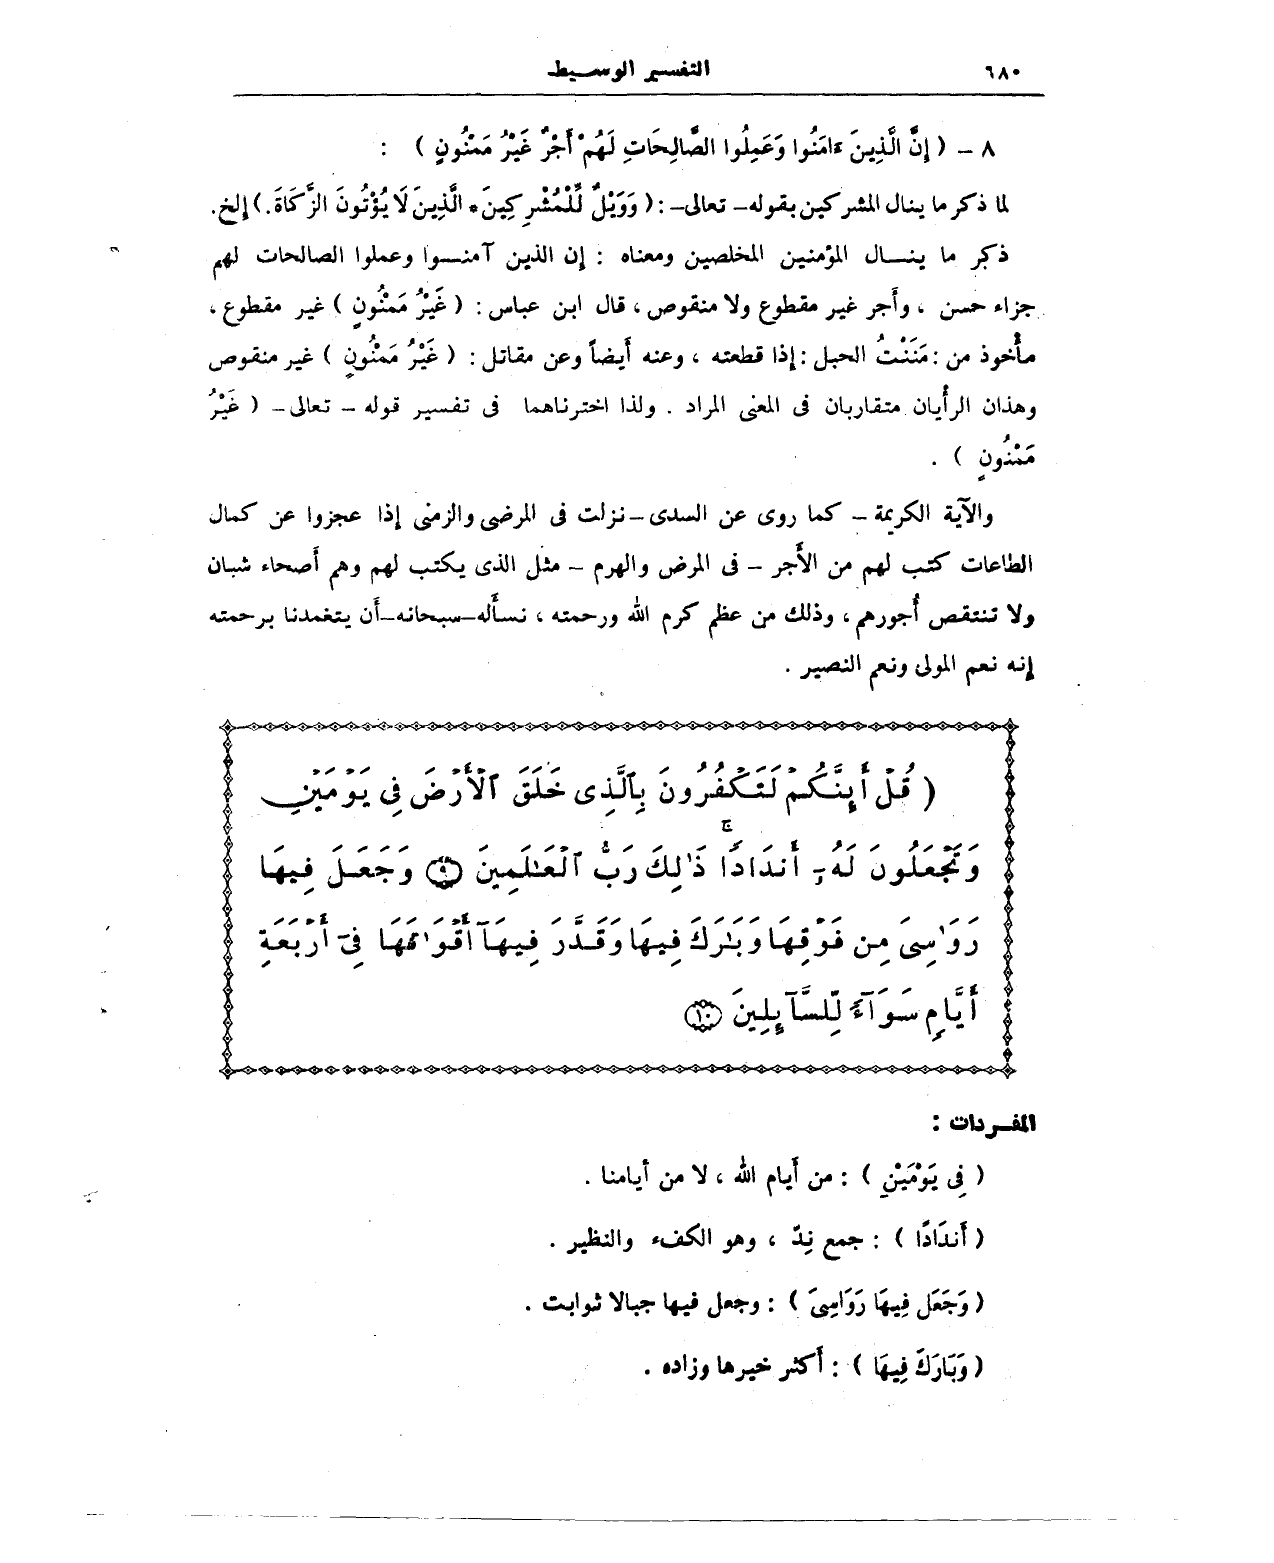 ٦٨٠
التفسير الوسيط
٨ – ( إِنَّ الَّذِينَ ءَامَنُوا وَعَمِلُوا الصَّالِحَاتِ لَهُمْ أَجْرٌ غَيْرُ مَمْنُونٍ ) :
لما ذكر ما ينال المشركين بقوله– تعالى–: ( وَوَيْلٌ لِّلْمُشْرِكِينَ * الَّذِينَ لَا يُؤْتُونَ الزَّكَاةَ.) إلخ.
ذكر ما ينال المؤمنين المخلصين ومعناه : إن الذين آمنوا وعملوا الصالحات لهم
جزاء حسن ، وأَجر غير مقطوع ولا منقوص ، قال ابن عباس : ( غَيْرُ مَمْنُونٍ ) غير مقطوع ،
مأْخوذ من : مَنَنْتُ الحبل : إذا قطعته ، وعنه أيضاً وعن مقاتل : ( غَيْرُ مَمْنُونٍ ) غير منقوص
وهذان الرأْيان متقاربان فى المعنى المراد . ولذا اخترناهما فى تفسير قوله – تعالى– ( غَيْرُ
مَمْنُونٍ ) .
والآية الكريمة – كما روى عن السدى – نزلت فى المرضى والزمنى إذا عجزوا عن كمال
الطاعات كتب لهم من الأَجر – فى المرض والهرم – مثل الذى يكتب لهم وهم أصحاء شبان
ولا تنتقص أُجورهم ، وذلك من عظم كرم الله ورحمته ، نسأَله–سبحانه–أَن يتغمدنا برحمته
إنه نعم المولى ونعم النصير .
( قُلْ أَئِنَّكُمْ لَتَكْفُرُونَ بِٱلَّذِى خَلَقَ ٱلْأَرْضَ فِى يَوْمَيْنِ
وَتَجْعَلُونَ لَهُۥٓ أَندَادًا ۚ ذَٰلِكَ رَبُّ ٱلْعَٰلَمِينَ ٩ وَجَعَلَ فِيهَا
رَوَٰسِىَ مِن فَوْقِهَا وَبَٰرَكَ فِيهَا وَقَدَّرَ فِيهَآ أَقْوَٰتَهَا فِىٓ أَرْبَعَةِ
أَيَّامٍ سَوَآءً لِّلسَّآئِلِينَ ١٠
المفردات :
( فِى يَوْمَيْنِ ) : من أَيام الله ، لا من أيامنا .
( أَندَادًا ) : جمع نِدّ ، وهو الكفء والنظير .
( وَجَعَل فِيهَا رَوَاسِىَ ) : وجعل فيها جبالا ثوابت .
( وَبَارَكَ فِيهَا ) : أَكثر خيرها وزاده .